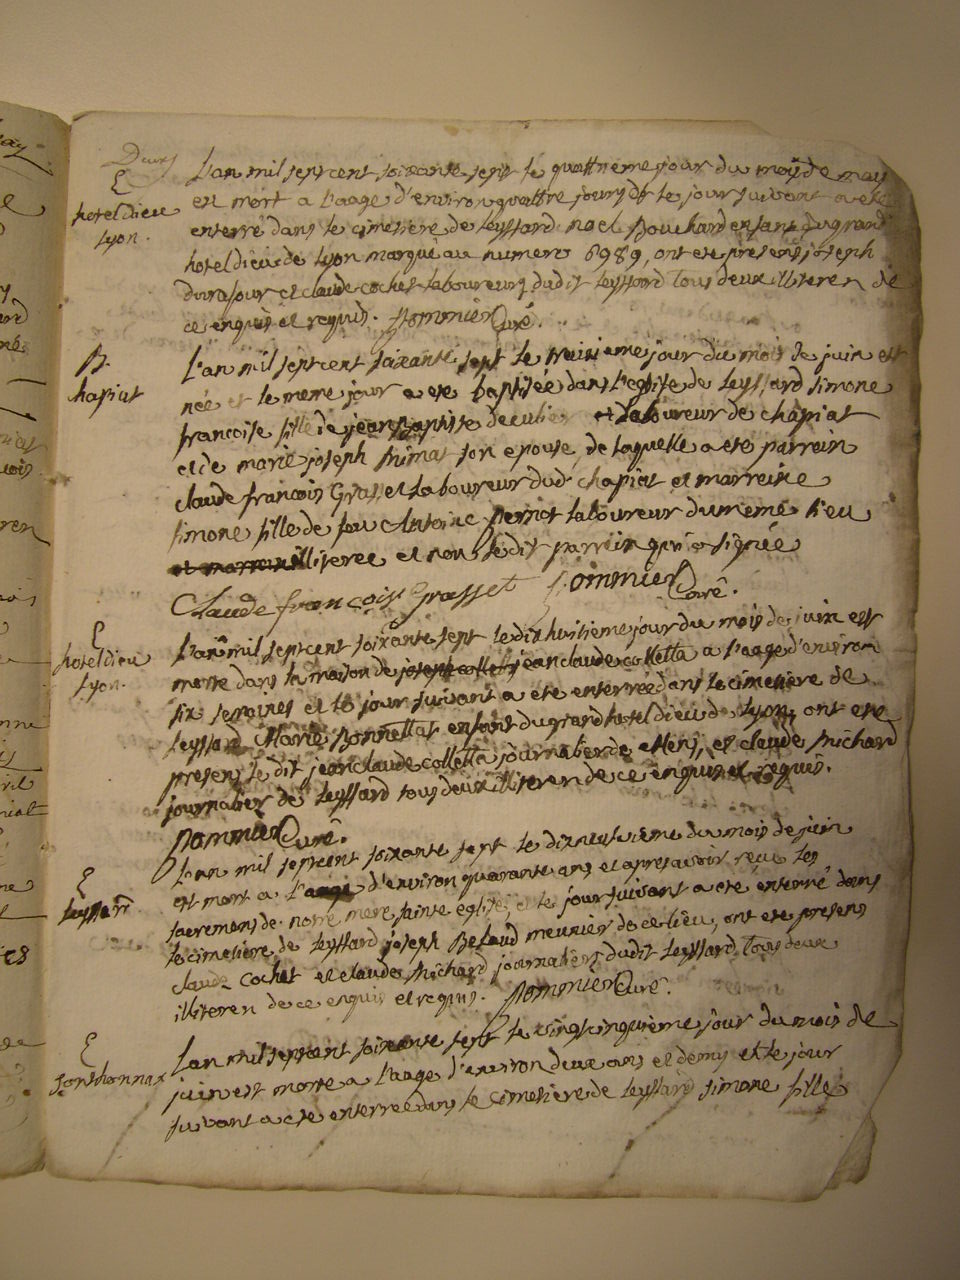 E
hotel dieu
Lyon.
L'an mil sept cent soixante sept le quattrieme jour du mois de may
est mort a l'aage d'environ quattre jours et le jour suivant a eté
enterré dans le cimetiere de Leyssard noel Bouchard enfant du grand
hotel dieu de Lyon marqué au numero 6989, ont eté presens joseph
durafour et claude cochet laboureurs dudit Leyssard tous deux illiteren de
ce enquis et requis. Pommier Curé.
B.
chapiat
L'an mil sept cent soixante sept le treizieme jour du mois de juin est
née et le meme jour a eté baptisée dans l'eglise de Leyssard simone
francoise fille de jean Baptiste laboureur de chapiat
et de marie joseph Primat son epouse, de laquelle a eté parrein
claude francois Grasset laboureur dud. chapiat et marreine
simone fille de feu Antoine perriot laboureur du meme lieu
et marreine illiteree et non le dit parrein qui a signée
Claude françois Grasset Pommier Curé.
E
hotel dieu
Lyon.
L'an mil sept cent soixante sept le dix huitieme jour du mois de juin est
morte dans la maison de joseph colletta jean claude colletta a l'aage d'environ
six semaines et le jour suivant a eté enterrée dans le cimetiere de
Leyssard Marie Bonnettat enfant du grand hotel dieu de Lyon, ont eté
presens le dit jean claude colletta journalier de et claude Michard
journalier de Leyssard tous deux illiteren de ce enquis et requis.
Pommier Curé.
E
Leyssard
L'an mil sept cent soixante sept le dixneuvieme du mois de juin
est mort a l'aage d'environ quarante ans et apres avoir reçu les
sacremens de notre mere sainte eglise, et le jour suivant a eté enterré dans
le cimetiere de Leyssard joseph Belaud meunier de ce lieu, ont eté presens
claude cochet et claude Michard journaliers dudit Leyssard tous deux
illiteren de ce enquis et requis. Pommier Curé.
E
Sonthonnax
L'an mil sept cent soixante sept le vingtcinquieme jour du mois de
juin est morte a l'aage d'environ deux ans et demy et le jour
suivant a eté enterree dans le cimetiere de Leyssard simone fille